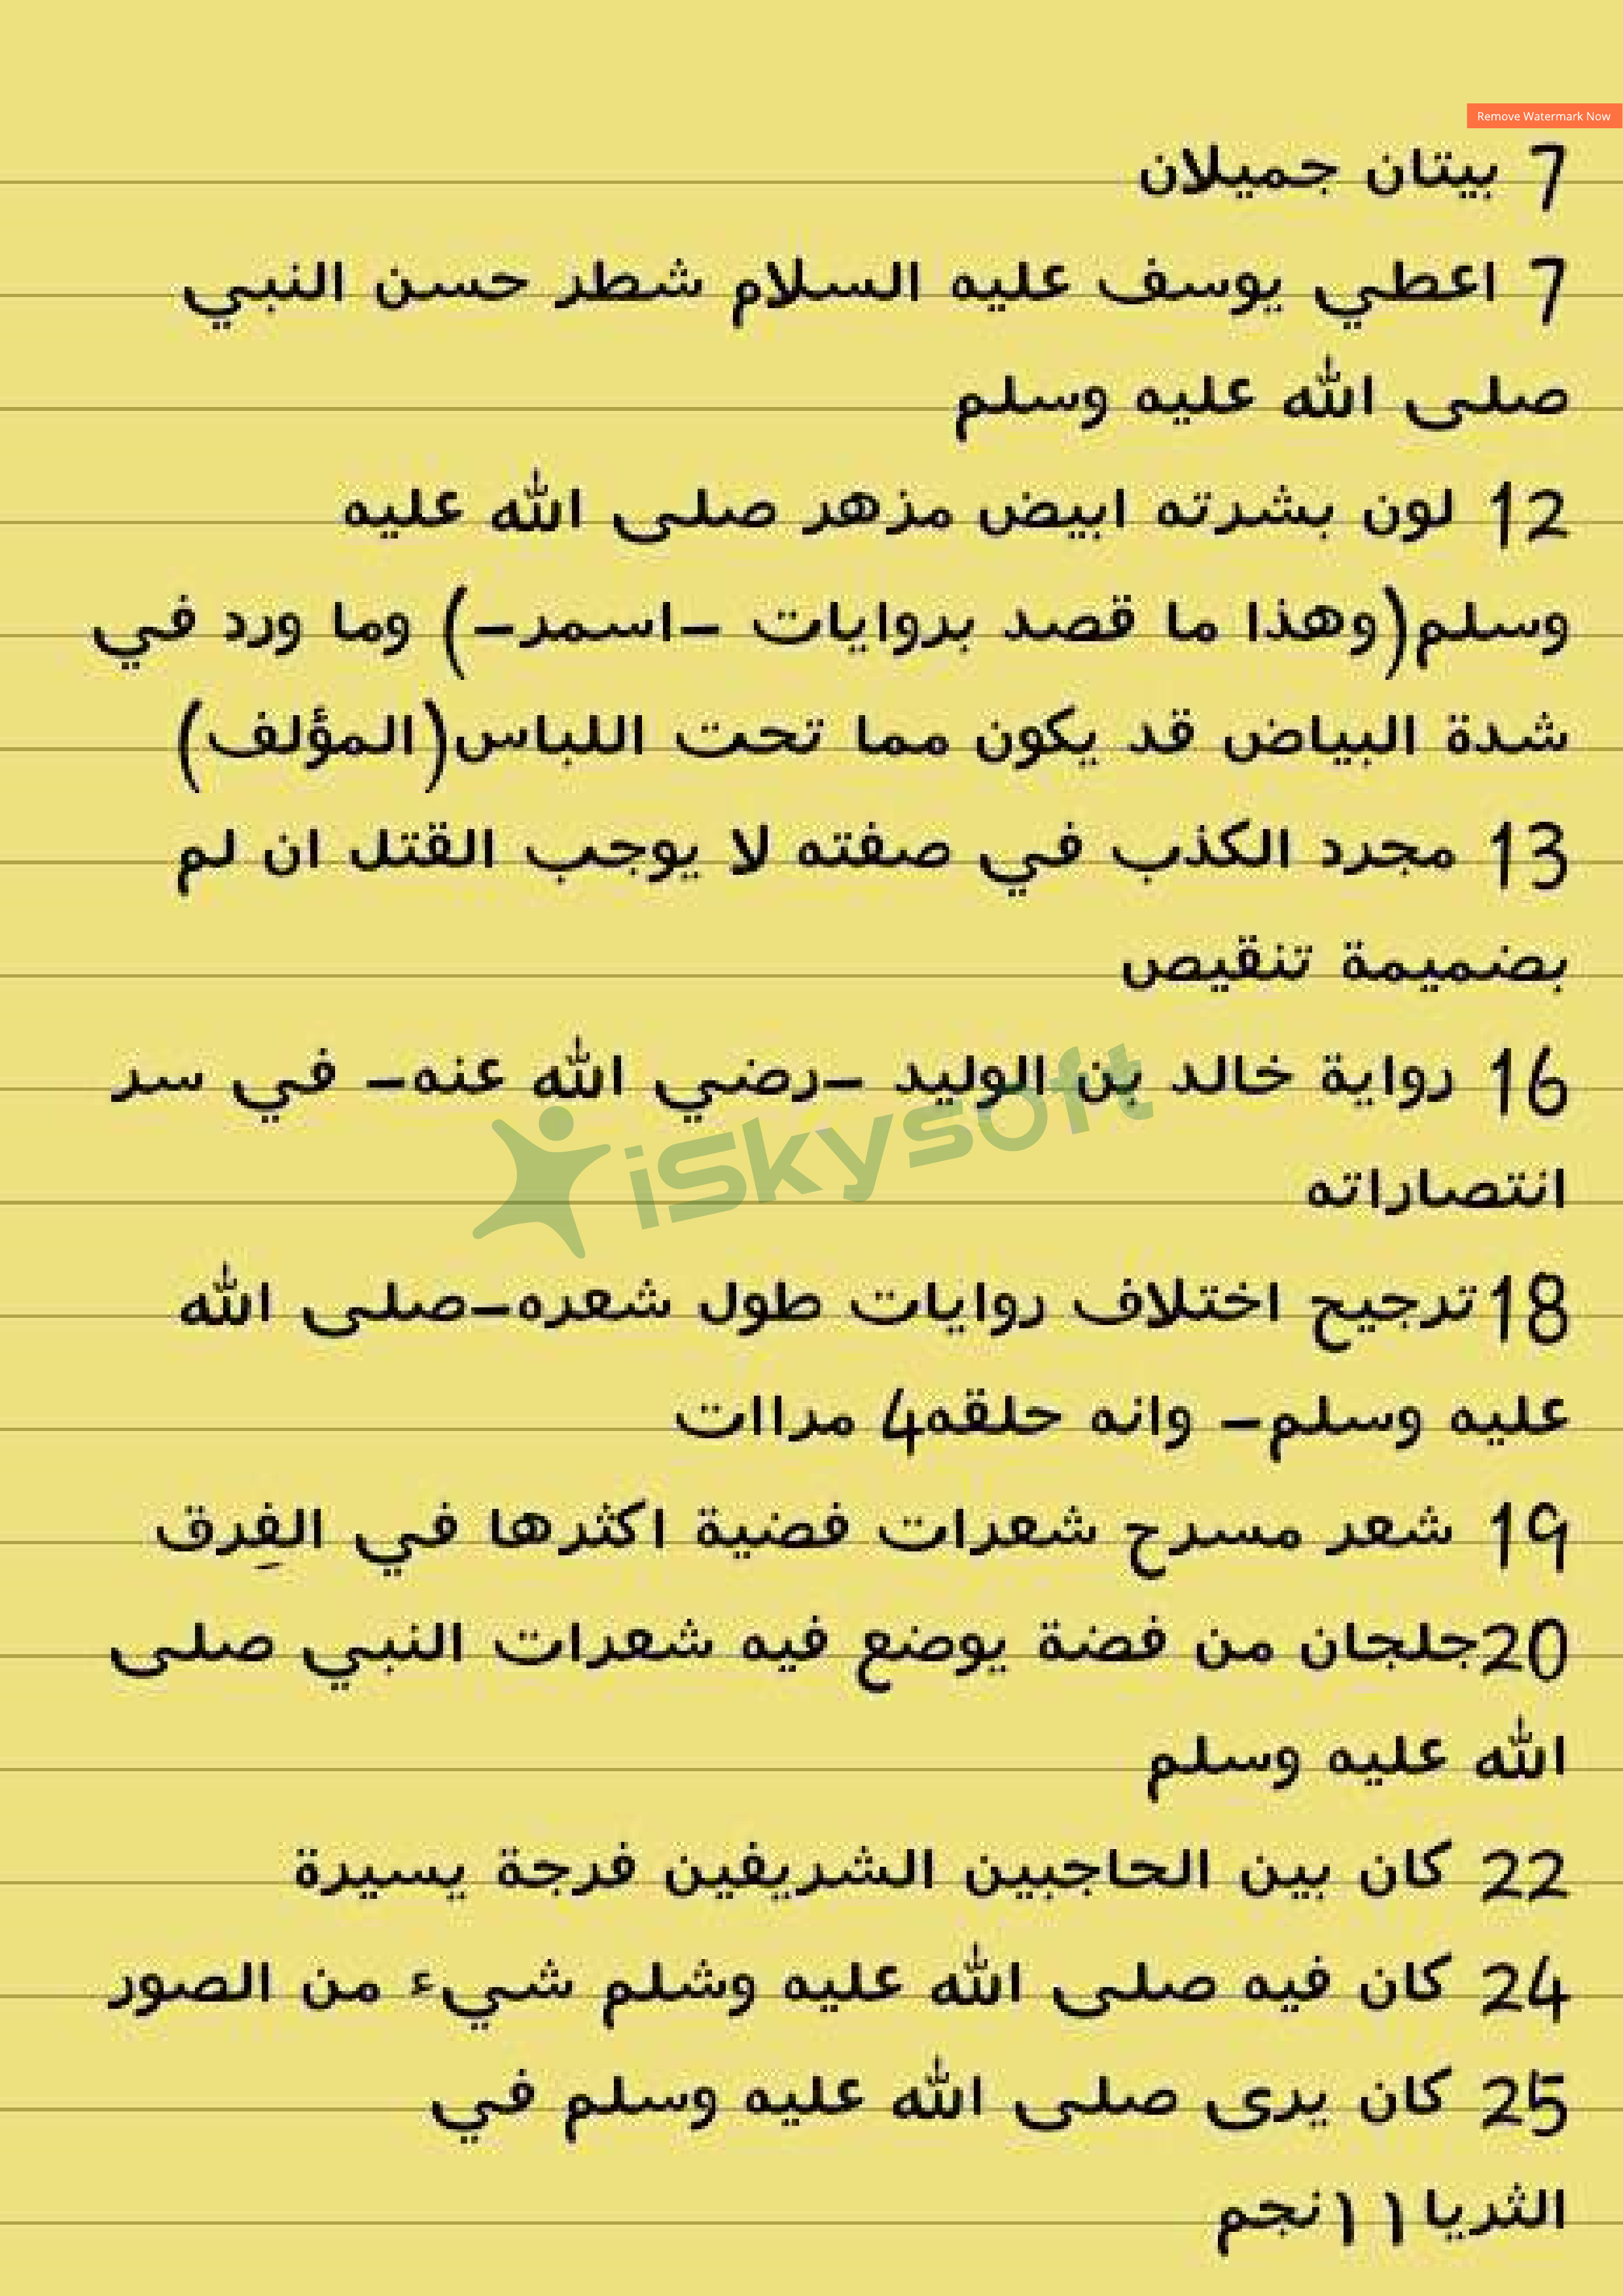 Remove Watermark Now
7 بيتان جميلان
7 اعطي يوسف عليه السلام شطر حسن النبي
صلى الله عليه وسلم
12 لون بشرته ابيض مزهر صلى الله عليه
وسلم(وهذا ما قصد بروايات -اسمر-) وما ورد في
شدة البياض قد يكون مما تحت اللباس(المؤلف)
13 مجرد الكذب في صفته لا يوجب القتل ان لم
بضميمة تنقيص
16 رواية خالد بن الوليد -رضي الله عنه- في سر
انتصاراته
iSkysoft
18ترجيح اختلاف روايات طول شعره-صلى الله
عليه وسلم- وانه حلقه4 مراات
19 شعر مسرح شعرات فضية اكثرها في الفِرق
20جلجان من فضة يوضع فيه شعرات النبي صلى
الله عليه وسلم
22 كان بين الحاجبين الشريفين فرجة يسيرة
24 كان فيه صلى الله عليه وشلم شيء من الصور
25 كان يرى صلى الله عليه وسلم في
الثريا١١نجم